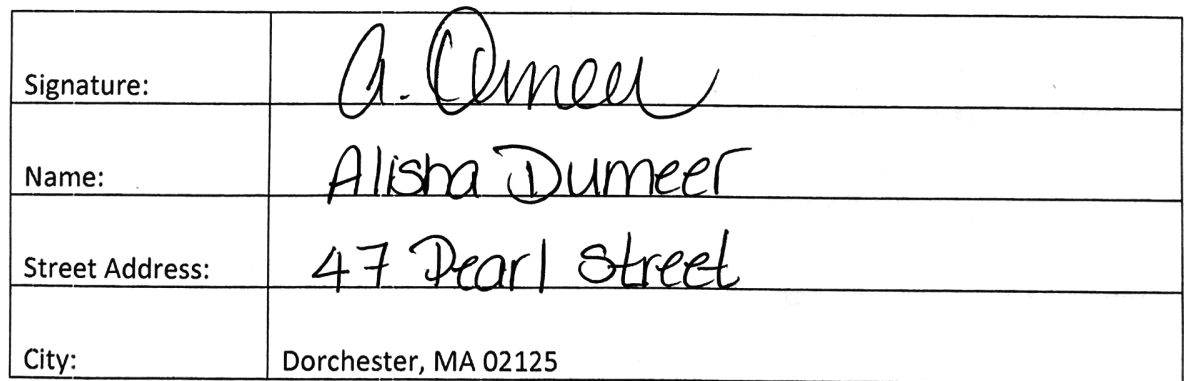 Signature: A. Dumeer
Name: Alisha Dumeer
Street Address: 47 Pearl Street
City: Dorchester, MA 02125